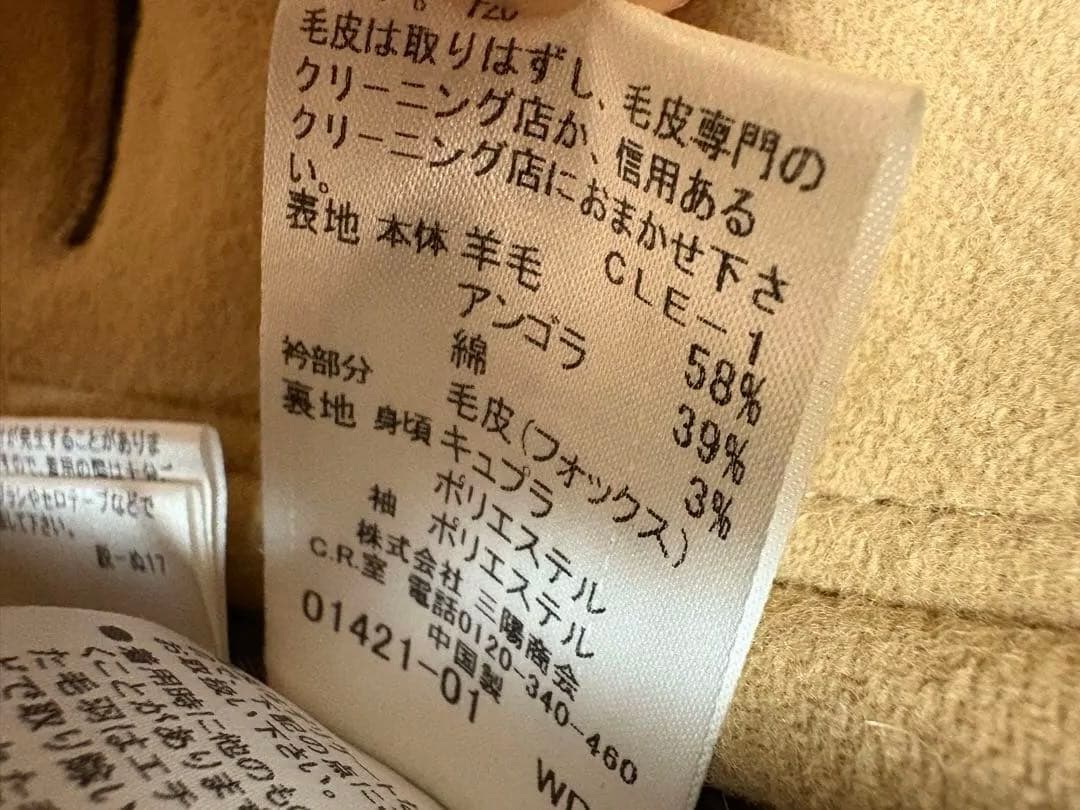 毛皮は取りはずし、毛皮専門の
クリーニング店か、信用ある
クリーニング店におまかせ下さ
い。
CLE-1
表地 本体 羊毛 58%
アンゴラ 39%
綿 3%
衿部分 毛皮(フォックス)
裏地 身頃 キュプラ
ポリエステル
袖 ポリエステル
株式会社 三陽商会
C.R.室 電話0120-340-460
中国製
01421-01
WD
が発生することがありま
ラシやセロテープなどで
して下さい。
訳-ぬ17
下さい。
●着用時に他のもの
くことがあります
た毛羽はエチ
いで取り除い